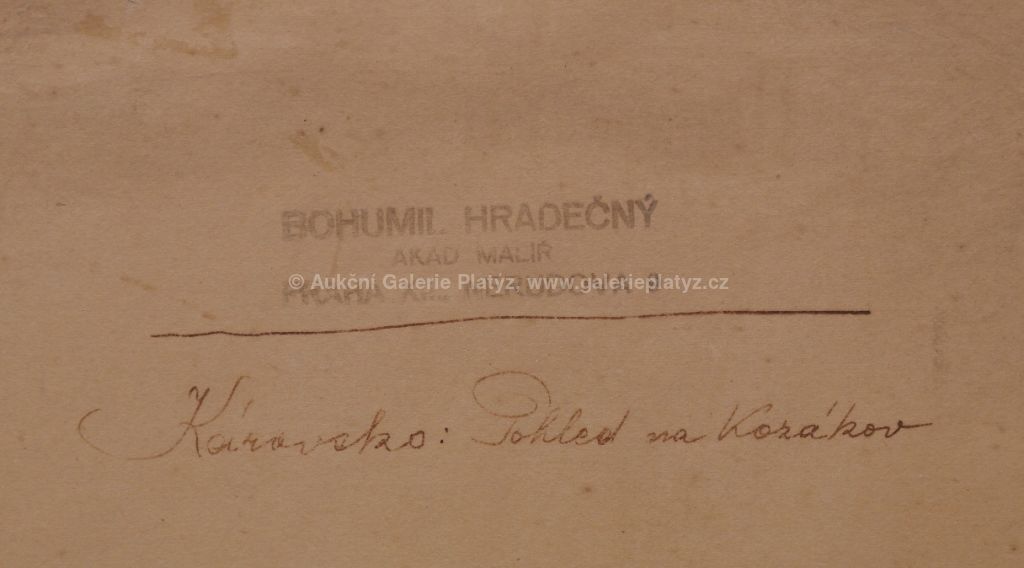 BOHUMIL HRADEČNÝ
AKAD MALÍŘ
© Aukční Galerie Platýz, www.galerieplatyz.cz
PRAHA NERUDOVA
Károvsko: Pohled na Kozákov